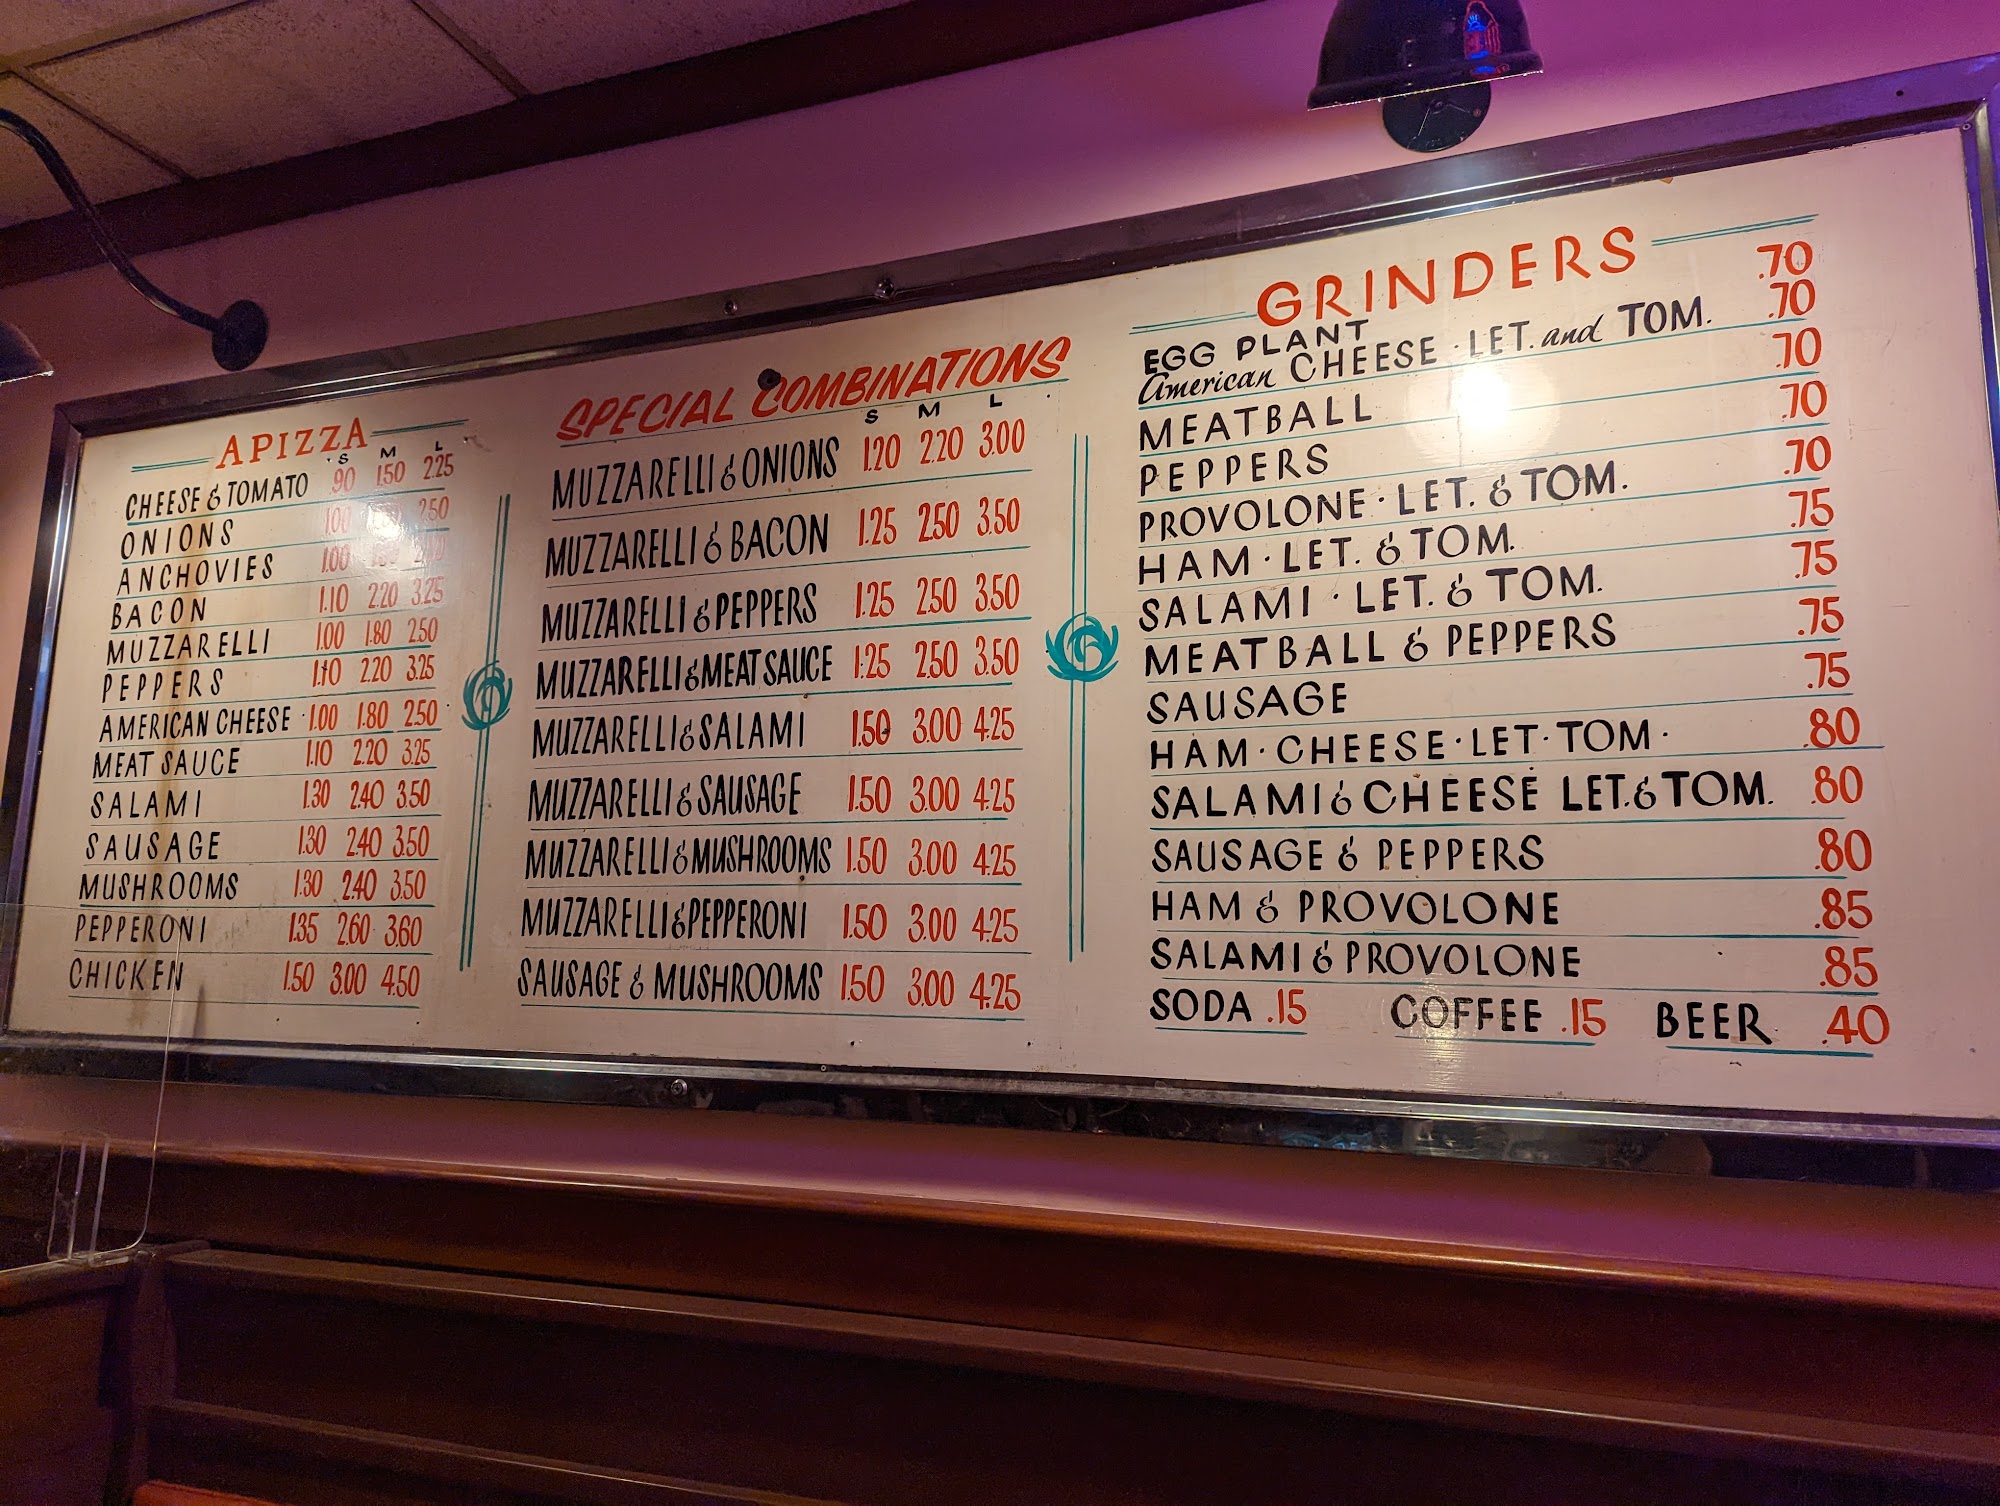 APIZZA
S M L
CHEESE & TOMATO .90 1.50 2.25
ONIONS 1.00 2.50
ANCHOVIES 1.00
BACON 1.10 2.20 3.25
MUZZARELLI 1.00 1.80 2.50
PEPPERS 1.10 2.20 3.25
AMERICAN CHEESE 1.00 1.80 2.50
MEAT SAUCE 1.10 2.20 3.25
SALAMI 1.30 2.40 3.50
SAUSAGE 1.30 2.40 3.50
MUSHROOMS 1.30 2.40 3.50
PEPPERONI 1.35 2.60 3.60
CHICKEN 1.50 3.00 4.50
SPECIAL COMBINATIONS
S M L
MUZZARELLI & ONIONS 1.20 2.20 3.00
MUZZARELLI & BACON 1.25 2.50 3.50
MUZZARELLI & PEPPERS 1.25 2.50 3.50
MUZZARELLI & MEAT SAUCE 1.25 2.50 3.50
MUZZARELLI & SALAMI 1.50 3.00 4.25
MUZZARELLI & SAUSAGE 1.50 3.00 4.25
MUZZARELLI & MUSHROOMS 1.50 3.00 4.25
MUZZARELLI & PEPPERONI 1.50 3.00 4.25
SAUSAGE & MUSHROOMS 1.50 3.00 4.25
GRINDERS
EGG PLANT .70
American CHEESE · LET. and TOM. .70
MEATBALL .70
PEPPERS .70
PROVOLONE · LET. & TOM. .70
HAM · LET. & TOM. .75
SALAMI · LET. & TOM. .75
MEATBALL & PEPPERS .75
SAUSAGE .75
HAM · CHEESE · LET · TOM · .80
SALAMI & CHEESE LET. & TOM. .80
SAUSAGE & PEPPERS .80
HAM & PROVOLONE .85
SALAMI & PROVOLONE .85
SODA .15 COFFEE .15 BEER .40